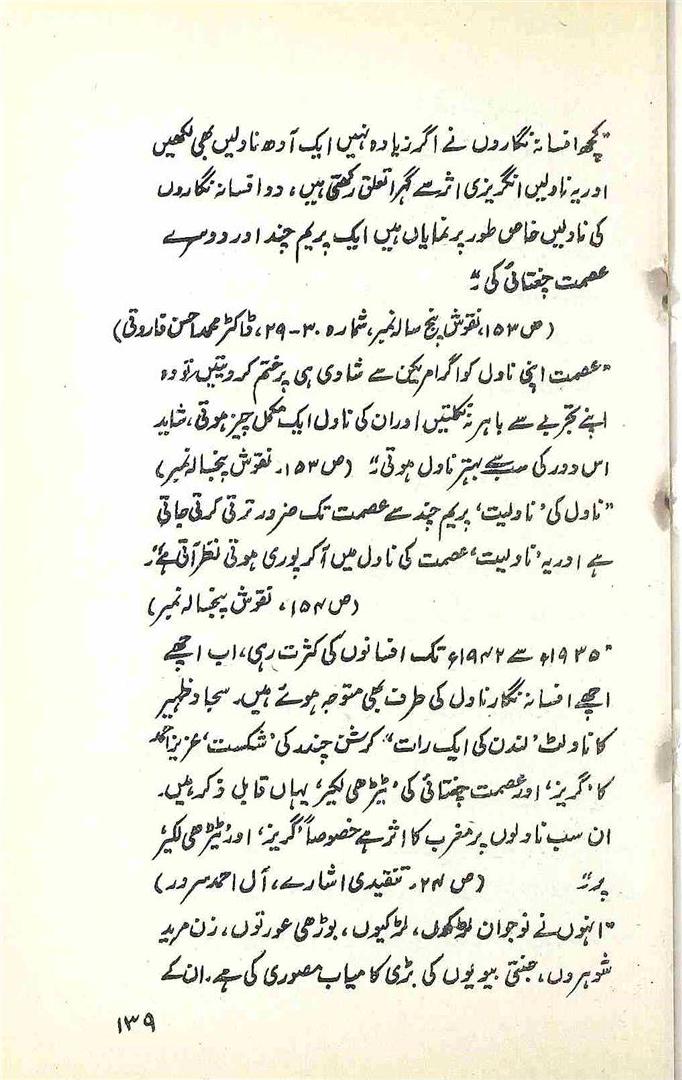 "کچھ افسانہ نگاروں نے اگر زیادہ نہیں ایک آدھ ناولیں بھی لکھیں
اور یہ ناولیں انگریزی اثر سے گہرا تعلق رکھتی ہیں، دو افسانہ نگاروں
کی ناولیں خاص طور پر نمایاں ہیں ایک پریم چند اور دوسرے
عصمت چغتائی کی۔"
(ص ۱۵۳، نقوش پنج سالہ نمبر، شمارہ ۳۰-۲۹، ڈاکٹر محمد احسن فاروقی)
"عصمت اپنی ناول کو اگر امریکن سے شادی ہی پر ختم کر دیتیں تو وہ
اپنے تجربے سے باہر نہ نکلتیں اور ان کی ناول ایک مکمل چیز ہوتی، شاید
اس دور کی سب سے بہتر ناول ہوتی۔" (ص ۱۵۳۔ نقوش پنجسالہ نمبر)
"ناول کی 'ناولیت' پریم چند سے عصمت تک ضرور ترقی کرتی جاتی
ہے اور یہ 'ناولیت' عصمت کی ناول میں آکر پوری ہوتی نظر آتی ہے"۔
(ص ۱۵۴، نقوش پنجسالہ نمبر)
"۱۹۳۵ء سے ۱۹۴۲ء تک افسانوں کی کثرت رہی، اب اچھے
اچھے افسانہ نگار ناول کی طرف بھی متوجہ ہوئے ہیں۔ سجاد ظہیر
کا ناولٹ 'لندن کی ایک رات" کرشن چندر کی 'شکست' عزیز احمد
کا 'گریز' اور عصمت چغتائی کی 'ٹیڑھی لکیر' یہاں قابل ذکر ہیں۔
ان سب ناولوں پر مغرب کا اثر ہے خصوصاً 'گریز' اور 'ٹیڑھی لکیر'
پر۔" (ص ۲۴۔ تنقیدی اشارے، آل احمد سرور)
"انہوں نے نوجوان لڑکوں، لڑکیوں، بوڑھی عورتوں، زن مرید
شوہروں، جنتی بیویوں کی بڑی کامیاب مصوری کی ہے۔ ان کے
۱۳۹